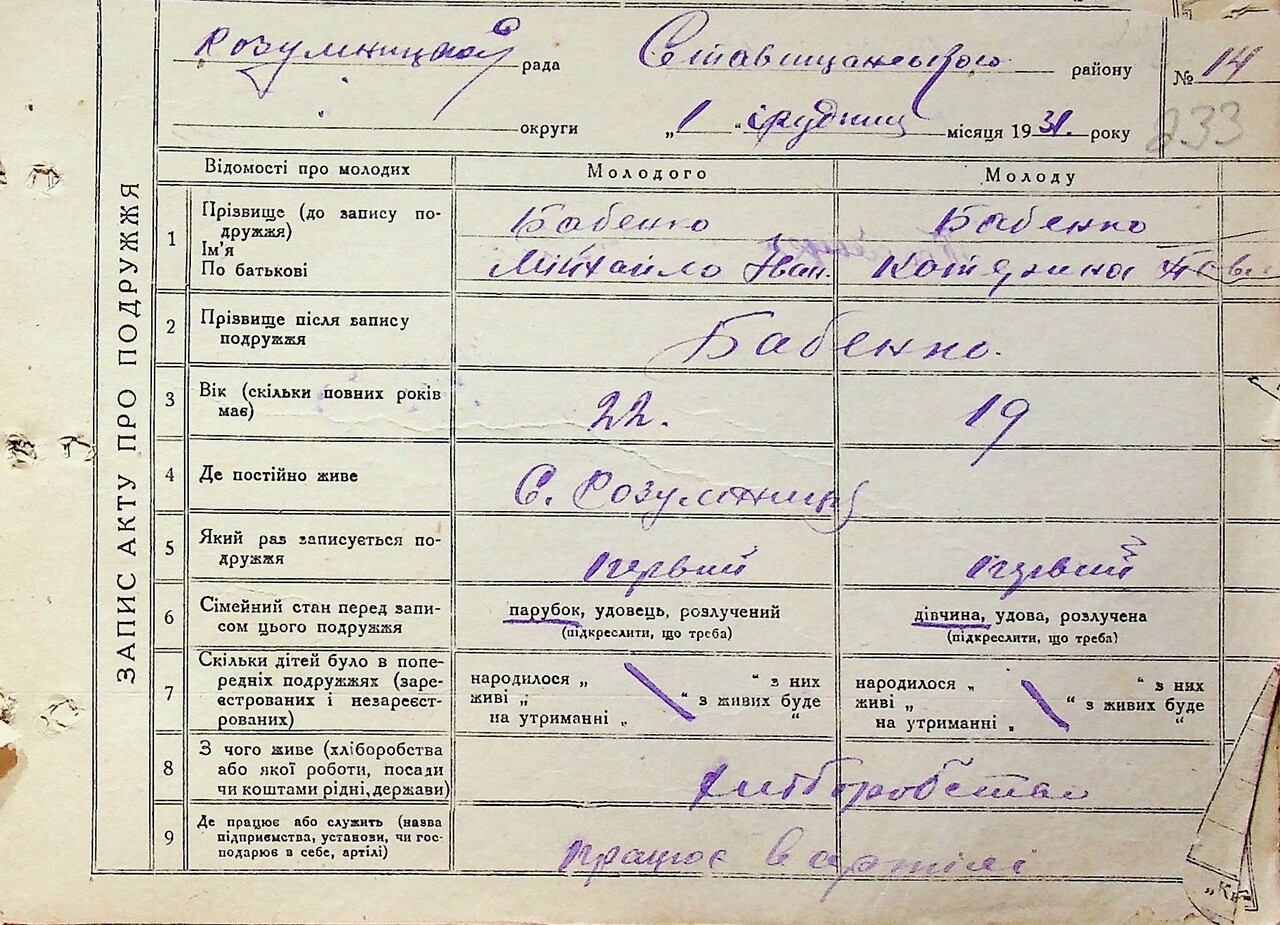 Розумницкой рада Ставищанського району № 14
округи „1“ грудня місяця 1931. року 233
ЗАПИС АКТУ ПРО ПОДРУЖЖЯ
Відомості про молодих Молодого Молоду
1 Прізвище (до запису по-
дружжя)
Ім'я
По батькові
Бабенко
Михайло Іван.
Бабенко
Катерина Павл
2 Прізвище після запису
подружжя
Бабенко.
3 Вік (скільки повних років
має)
22. 19
4 Де постійно живе С. Розумниця
5 Який раз записується по-
дружжя
первий первий
6 Сімейний стан перед запи-
сом цього подружжя
парубок, удовець, розлучений
(підкреслити, що треба)
дівчина, удова, розлучена
(підкреслити, що треба)
7 Скільки дітей було в попе-
редніх подружжях (заре-
єстрованих і незареєст-
рованих)
народилося „ “ з них
живі „ “ з живих буде
на утриманні „ “
народилося „ “ з них
живі „ “ з живих буде
на утриманні „ “
8 З чого живе (хліборобства
або якої роботи, посади
чи коштами рідні, держави)
хліборобства
9 Де працює або служить (назва
підприємства, установи, чи гос-
подарює в себе, артілі)
працює в артілі